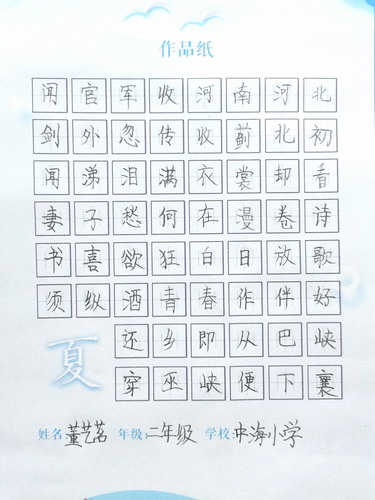 作品纸
闻官军收河南河北
剑外忽传收蓟北初
闻涕泪满衣裳却看
妻子愁何在漫卷诗
书喜欲狂白日放歌
须纵酒青春作伴好
还乡即从巴峡
穿巫峡便下襄
夏
姓名:董艺茗 年级:二年级 学校:中海小学